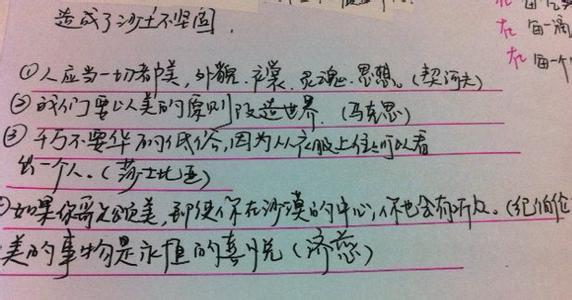 造成了沙土不坚固.
①人应当一切都美,外貌.衣裳.灵魂.思想。(契诃夫)
②我们要以美的原则改造世界.(马克思)
③千万不要华而低俗,因为从衣服上往往可以看
出一个人。(莎士比亚)
如果你寄之颂美,即使你在沙漠的中心,你也会有听众。(纪伯伦
美的事物是永恒的喜悦(济慈)
在
在 每一滴
在 每一个